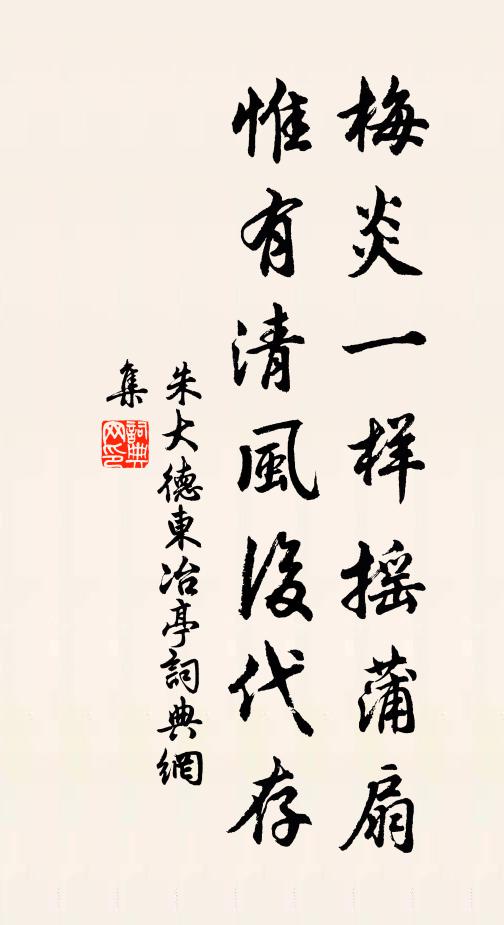 梅炎一样摇蒲扇
惟有清風後代存
朱大德東冶亭詞典網
集
詞典
网印